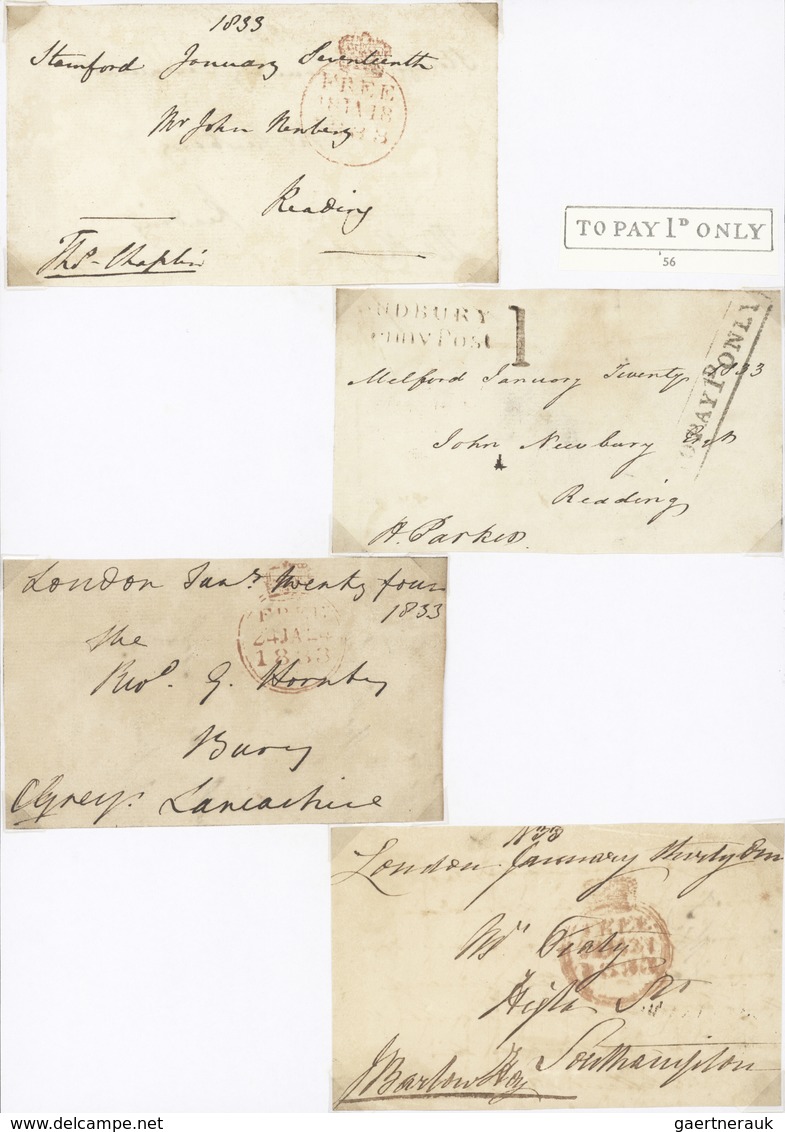 1833
Stamford January Seventeenth
FREE
18 JA 18
1833
Mr John Newbery
Reading
Thos. Chaplin
TO PAY 1D ONLY
'56
UDBURY
enny Post
1
TO PAY 1D ONLY
Melford January Twenty 1833
John Newbury
Reading
H. Parker
London Jany. twenty four
1833
FREE
24 JA 24
1833
The
Revd. G. Hornby
Bury
CGrey. Lancashire
1833
London January thirty One
FREE
1833
Mr
High St
Southampton
JBarlow Hoy
gaertnerauk